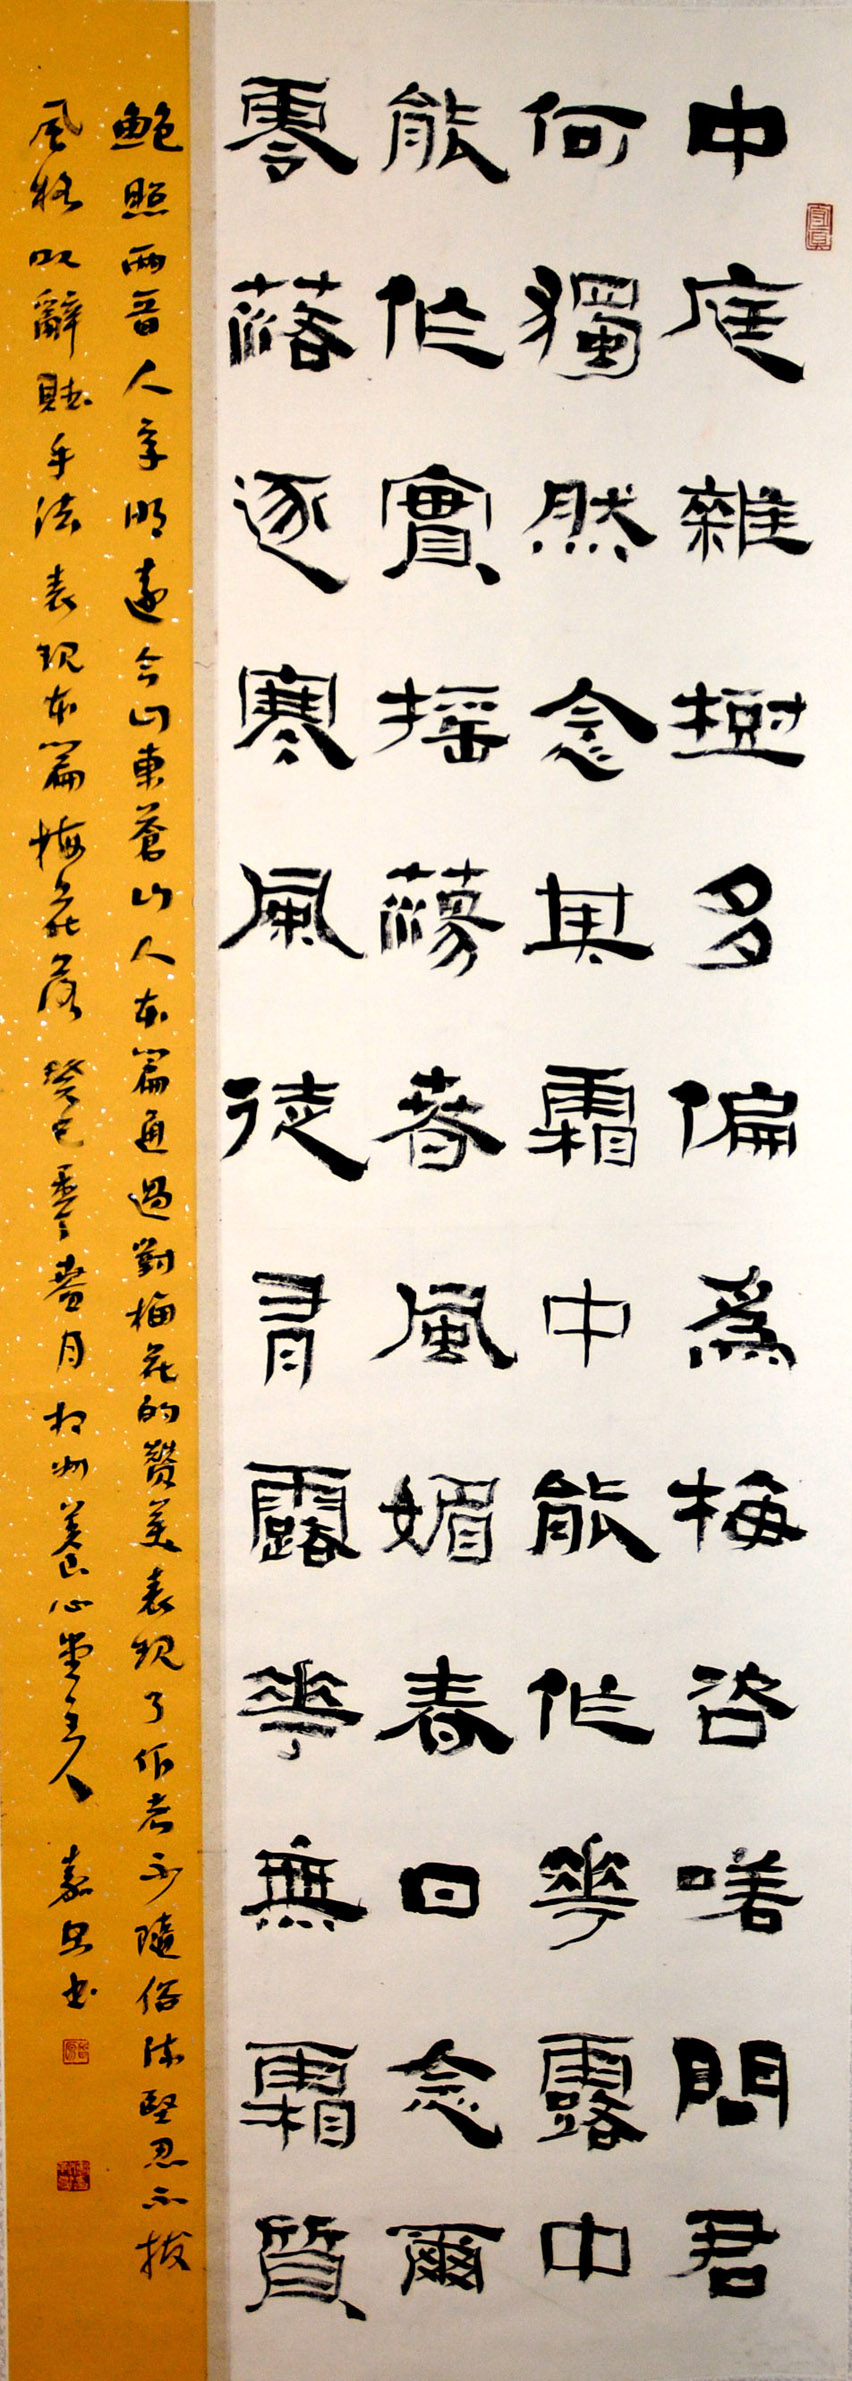 中庭雜樹多偏爲梅咨嗟問君
何獨然念其霜中能作華露中
能作實摇蕩春風媚春日念爾
零落逐寒風徒有露華無霜質
鮑照兩晉人字明遠今山東蒼山人本篇通過對梅花的贊美表現了作者不隨俗流堅忍不拔
風格以辭賦手法表現本篇梅花落 癸巳春月州養心堂主人 書